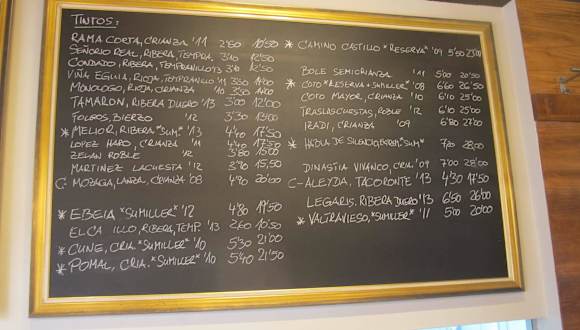 TINTOS:
RAMA CORTA, CRIANZA '11 2'60 10'50
SEÑORIO REAL, RIBERA, TEMPRA. 3'40 12'50
CONDADO, RIBERA, TEMPRANILLO 13 3'40 12'50
VIÑA EGUIA, RIOJA, TEMPRANILLO '11 3'50 14'00
MONOLOGO, RIOJA, CRIANZA '10 3'50 14'00
TAMARON, RIBERA DUERO '13 3'00 12'00
BIERZO '12 3'30 13'00
* MELIOR, RIBERA "SUM." '13 4'40 17'50
LOPEZ HARO, CRIANZA '11 4'40 17'50
ZELAN ROBLE '12 3'80 15'00
MARTINEZ LACUESTA '12 3'90 15,50
C- MOZAGA, LANZA, CRIANZA '08 4'90 20'00
* EBEIA *SUMILLER* '12 4'80 19'50
EL CA ILLO, RIBERA, TEMP. '13 2'60 10'50
* CUNE, CRIA. *SUMILLER* '10 5'30 21'00
* POMAL, CRIA. *SUMILLER* '10 5'40 21'50
* CAMINO CASTILLO *RESERVA* '09 5'30 23'00
BOLE SEMICRIANZA '11 5'00 20'50
* COTO *RESERVA + SUMILLER* '08 6'60 26'50
COTO MAYOR, CRIANZA '10 6'10 25'00
TRASLASCUESTAS, ROBLE '12 6'10 25'00
IZADI, CRIANZA '09 6'80 27'00
* DE SILENCIO, EXTREM. *SUM* 7'20 28'00
DINASTIA VIVANCO, CRIA. '09 7'00 28'00
C- ALEYDA, TACORONTE '13 4'30 17'50
LEGARIS, RIBERA DUERO '13 6'50 26'00
* VALTRAVIESO, *SUMILLER* '11 5'00 20'00